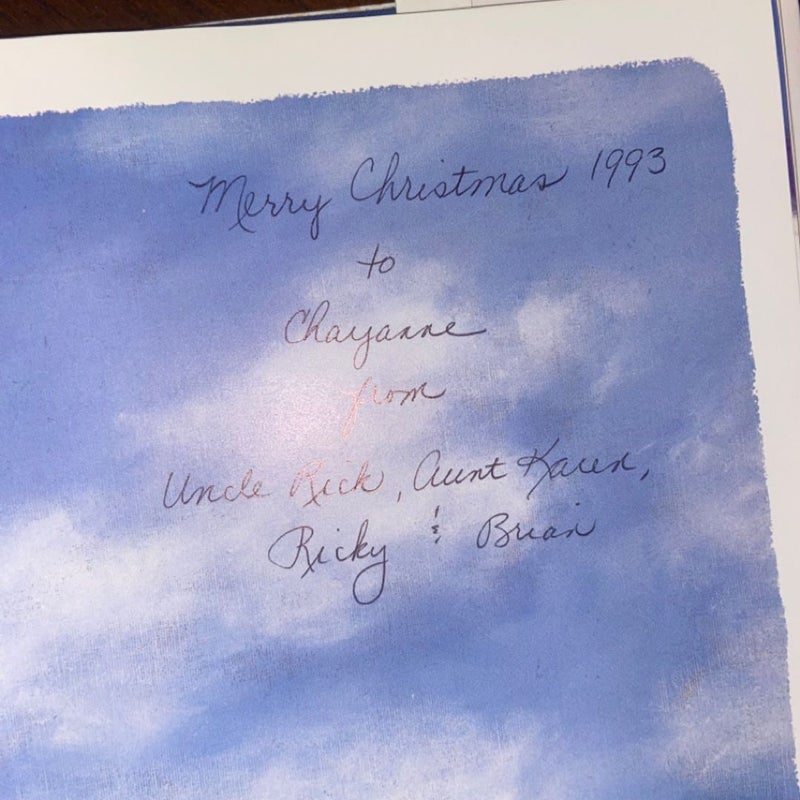 Merry Christmas 1993
to
Chayanne
from
Uncle Rick, Aunt Karen,
Ricky & Brian